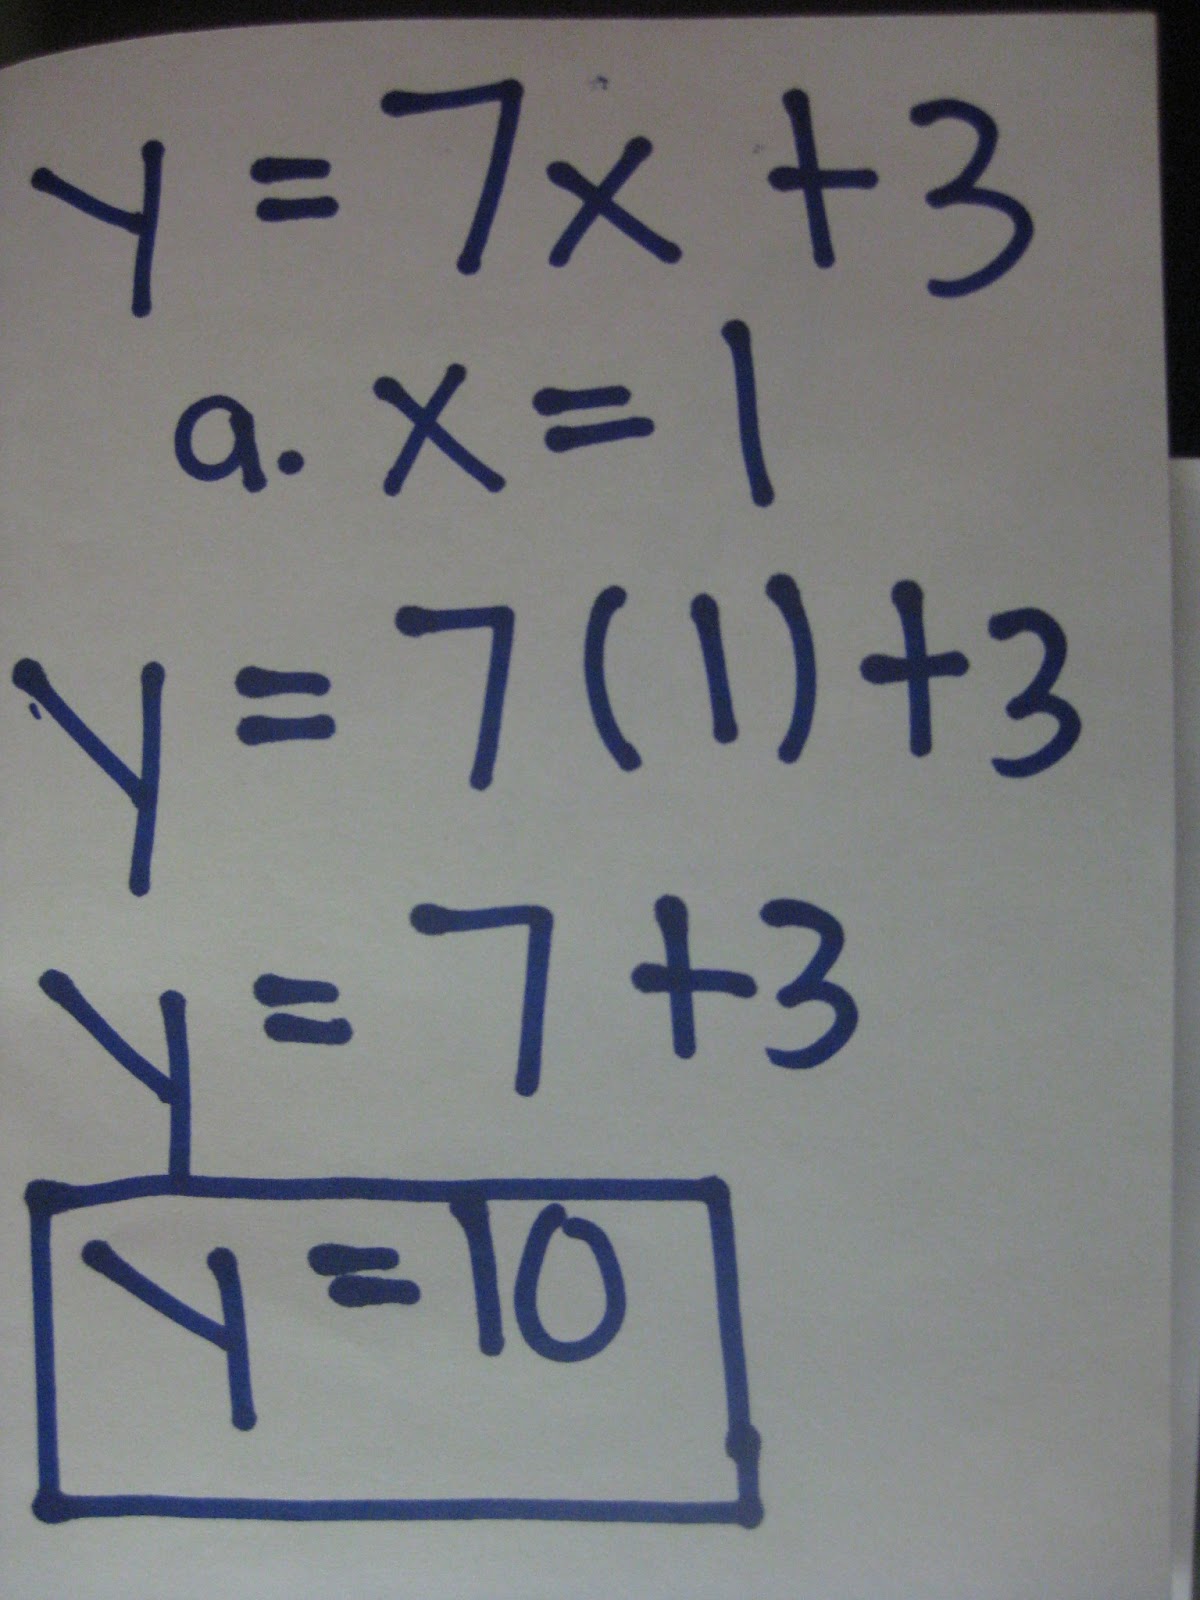 y = 7x + 3
a. x = 1
y = 7(1)+3
y = 7 +3
y = 10